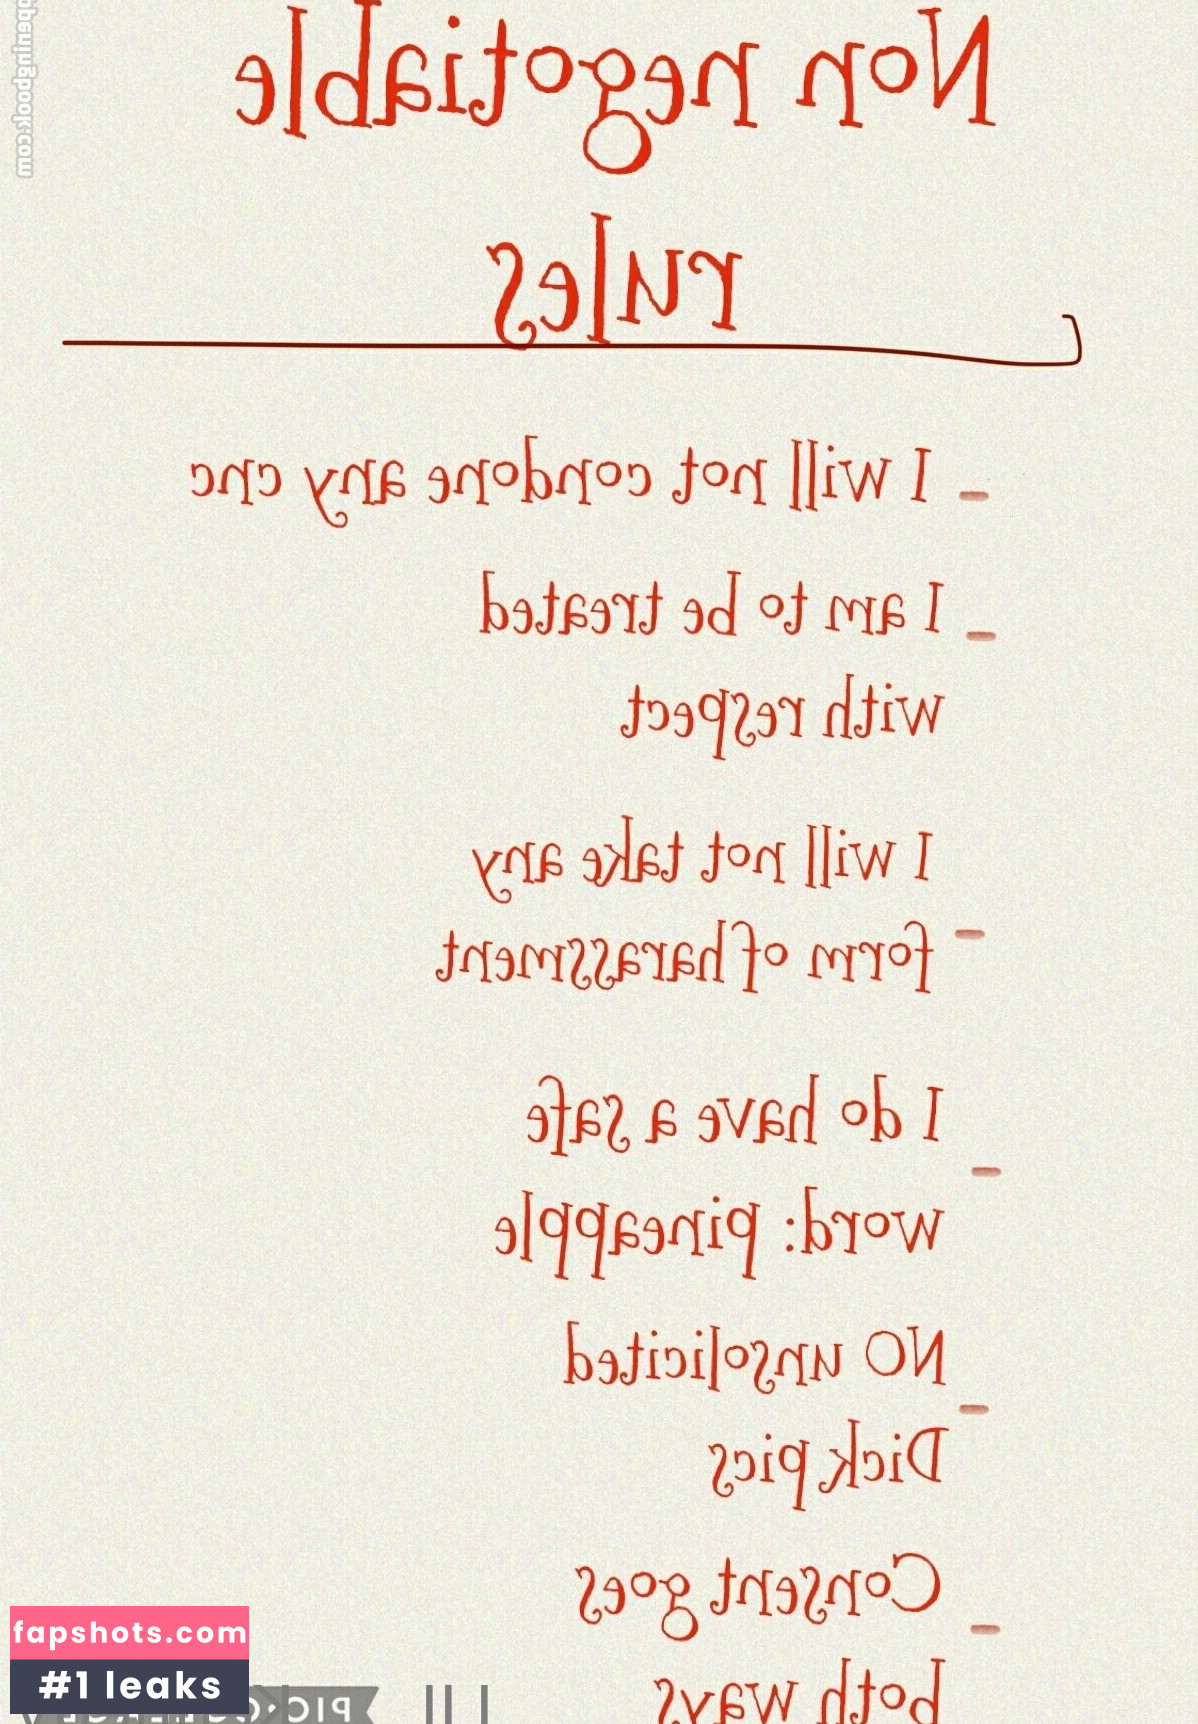 ppeningbook.com
Non negotiable
rules
- I will not condone any cnc
- I am to be treated
with respect
I will not take any
- form of harassment
- I do have a safe
word: pineapple
NO unsolicited
- Dick pics
- Consent goes
both ways
fapshots.com
#1 leaks
PIC